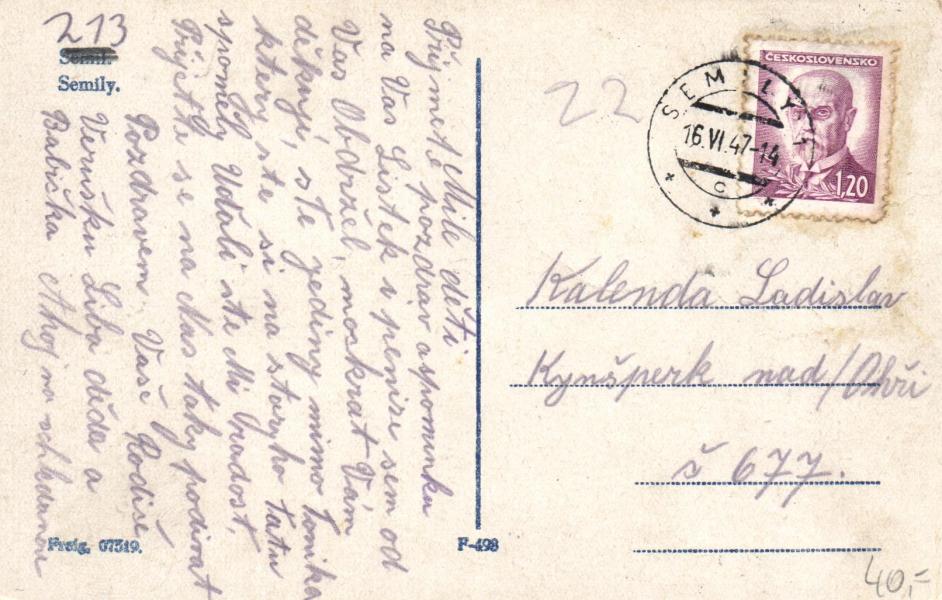 213
Semil.
Semily.
Milé děti
Přijměte pozdrav a spominku
na Vas Listek i penize sem od
Vas Obdržel, mockrat Vám
děkuji, ste jediny mimo Tonika
ktery ste si na staryho tatu
spomněly Udělali ste Mi Vradost,
Přijette se na Nas taky podivat
Pozdravem Vaše Rodiče
Verušku Liba děda a
Babička Ahoj na
Preig, 07519.
F-498
22
ČESKOSLOVENSKO
1,20
SEMILY
16.VI.47-14
C
Kalenda Ladislav
Kynšperk nad/Ohři
č 677.
40,-